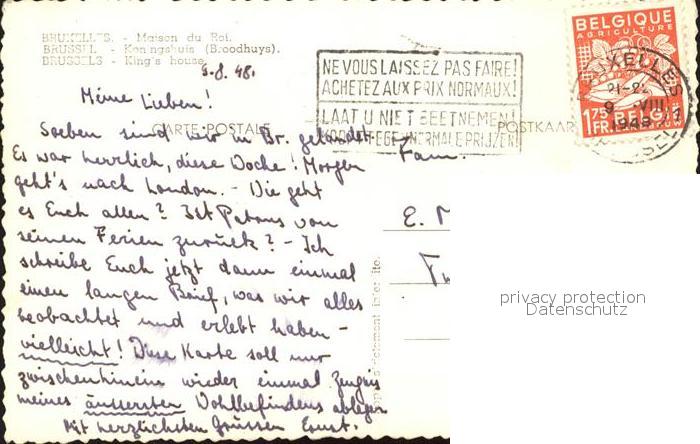 BRUXELLES. - Maison du Roi.
BRUSSEL - Koningshuis (Broodhuys).
BRUSSELS - King's house.
9.8.48.
NE VOUS LAISSEZ PAS FAIRE!
ACHETEZ AUX PRIX NORMAUX!
LAAT U NIET BEETNEMEN!
KOOPT TEGEN NORMALE PRIJZEN!
BELGIQUE
AGRICULTURE
1.75
FR
BELGIË
LANDBOUW
BRUXELLES
21-22
9 VIII
1948
BRUSSEL
CARTE POSTALE
POSTKAAR
Meine Lieben!
Soeben sind wir in Br. gelandet.
Es war herrlich, diese Woche! Morgen
geht's nach London. - Wie geht
es Euch allen? Ist Patons von
seinen Ferien zurück? - Ich
schreibe Euch jetzt dann einmal
einen langen Brief, was wir alles
beobachtet und erlebt haben -
vielleicht! Diese Karte soll nur
zwischenhinein wieder einmal Zeugnis
meines äussersten Wohlbefindens ablegen
Mit herzlichsten Grüssen Ernst.
Fam.
E.
privacy protection
Datenschutz